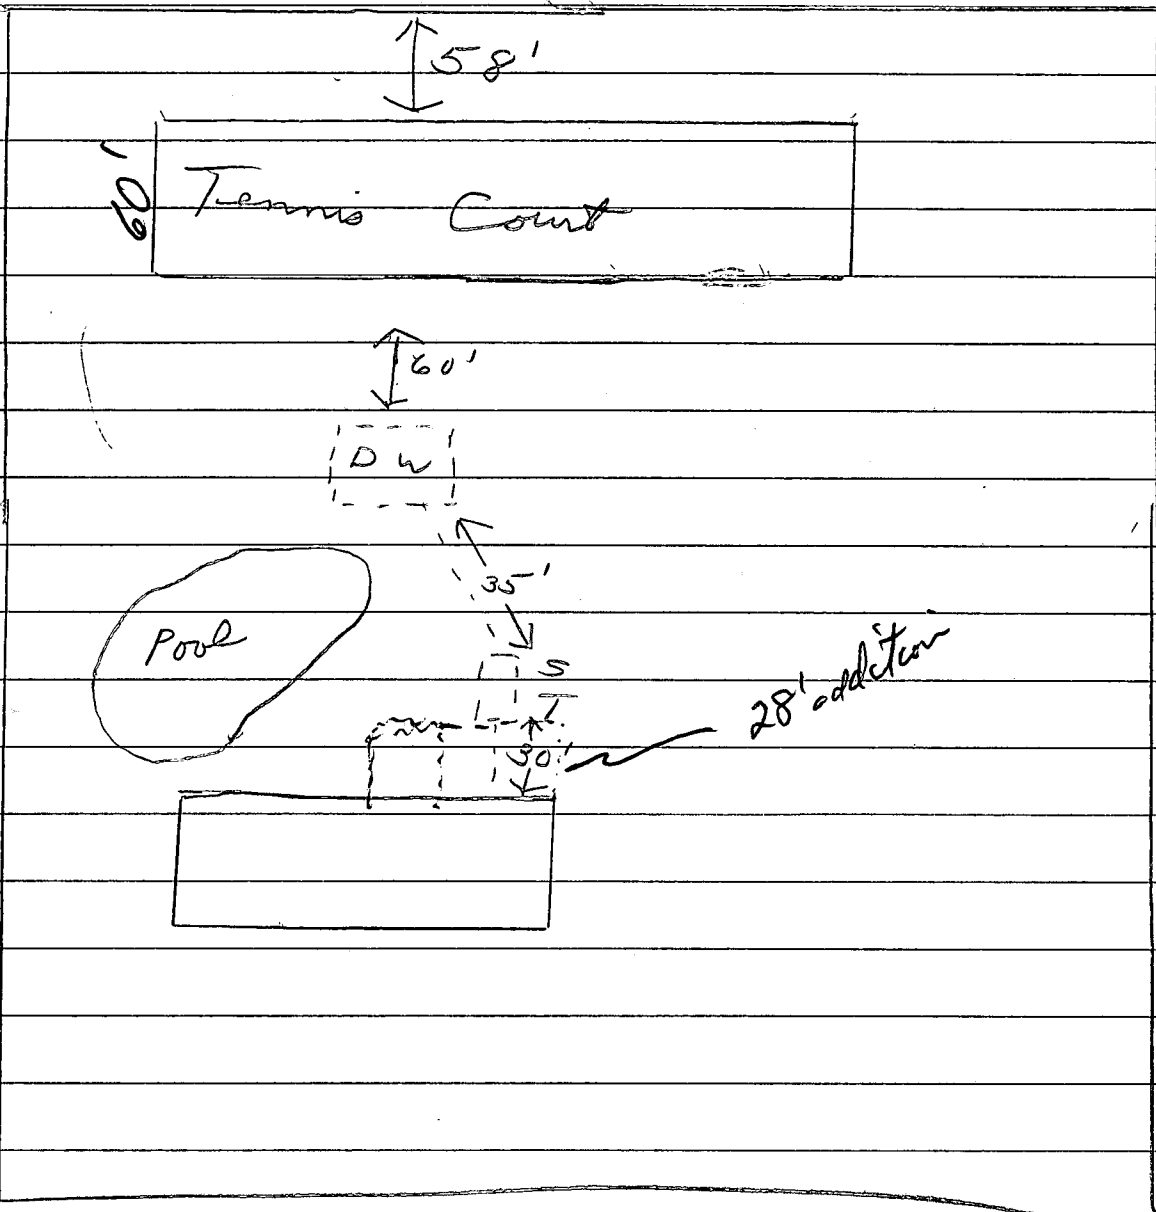 58'
60'
Tennis Court
60'
DW
35'
Pool
S
T
28' addition
30'